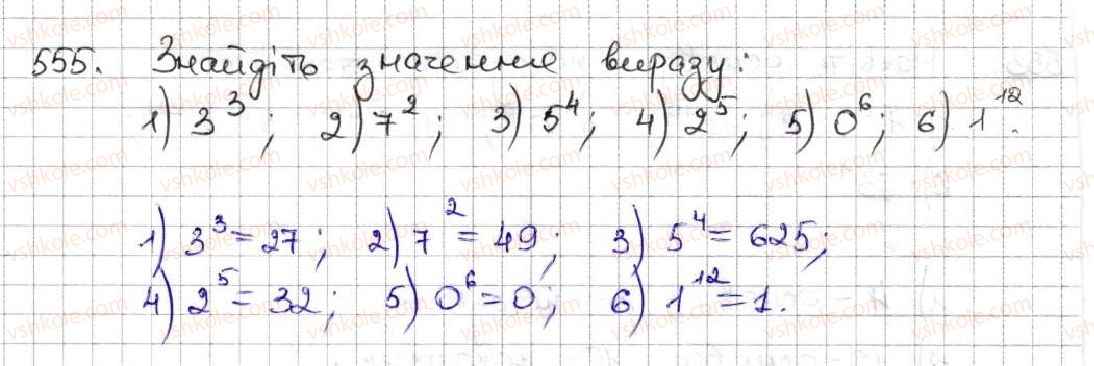 555. Знайдіть значення виразу:
1) 3³; 2) 7²; 3) 5⁴; 4) 2⁵; 5) 0⁶; 6) 1¹².
1) 3³ = 27; 2) 7² = 49; 3) 5⁴ = 625;
4) 2⁵ = 32; 5) 0⁶ = 0; 6) 1¹² = 1.